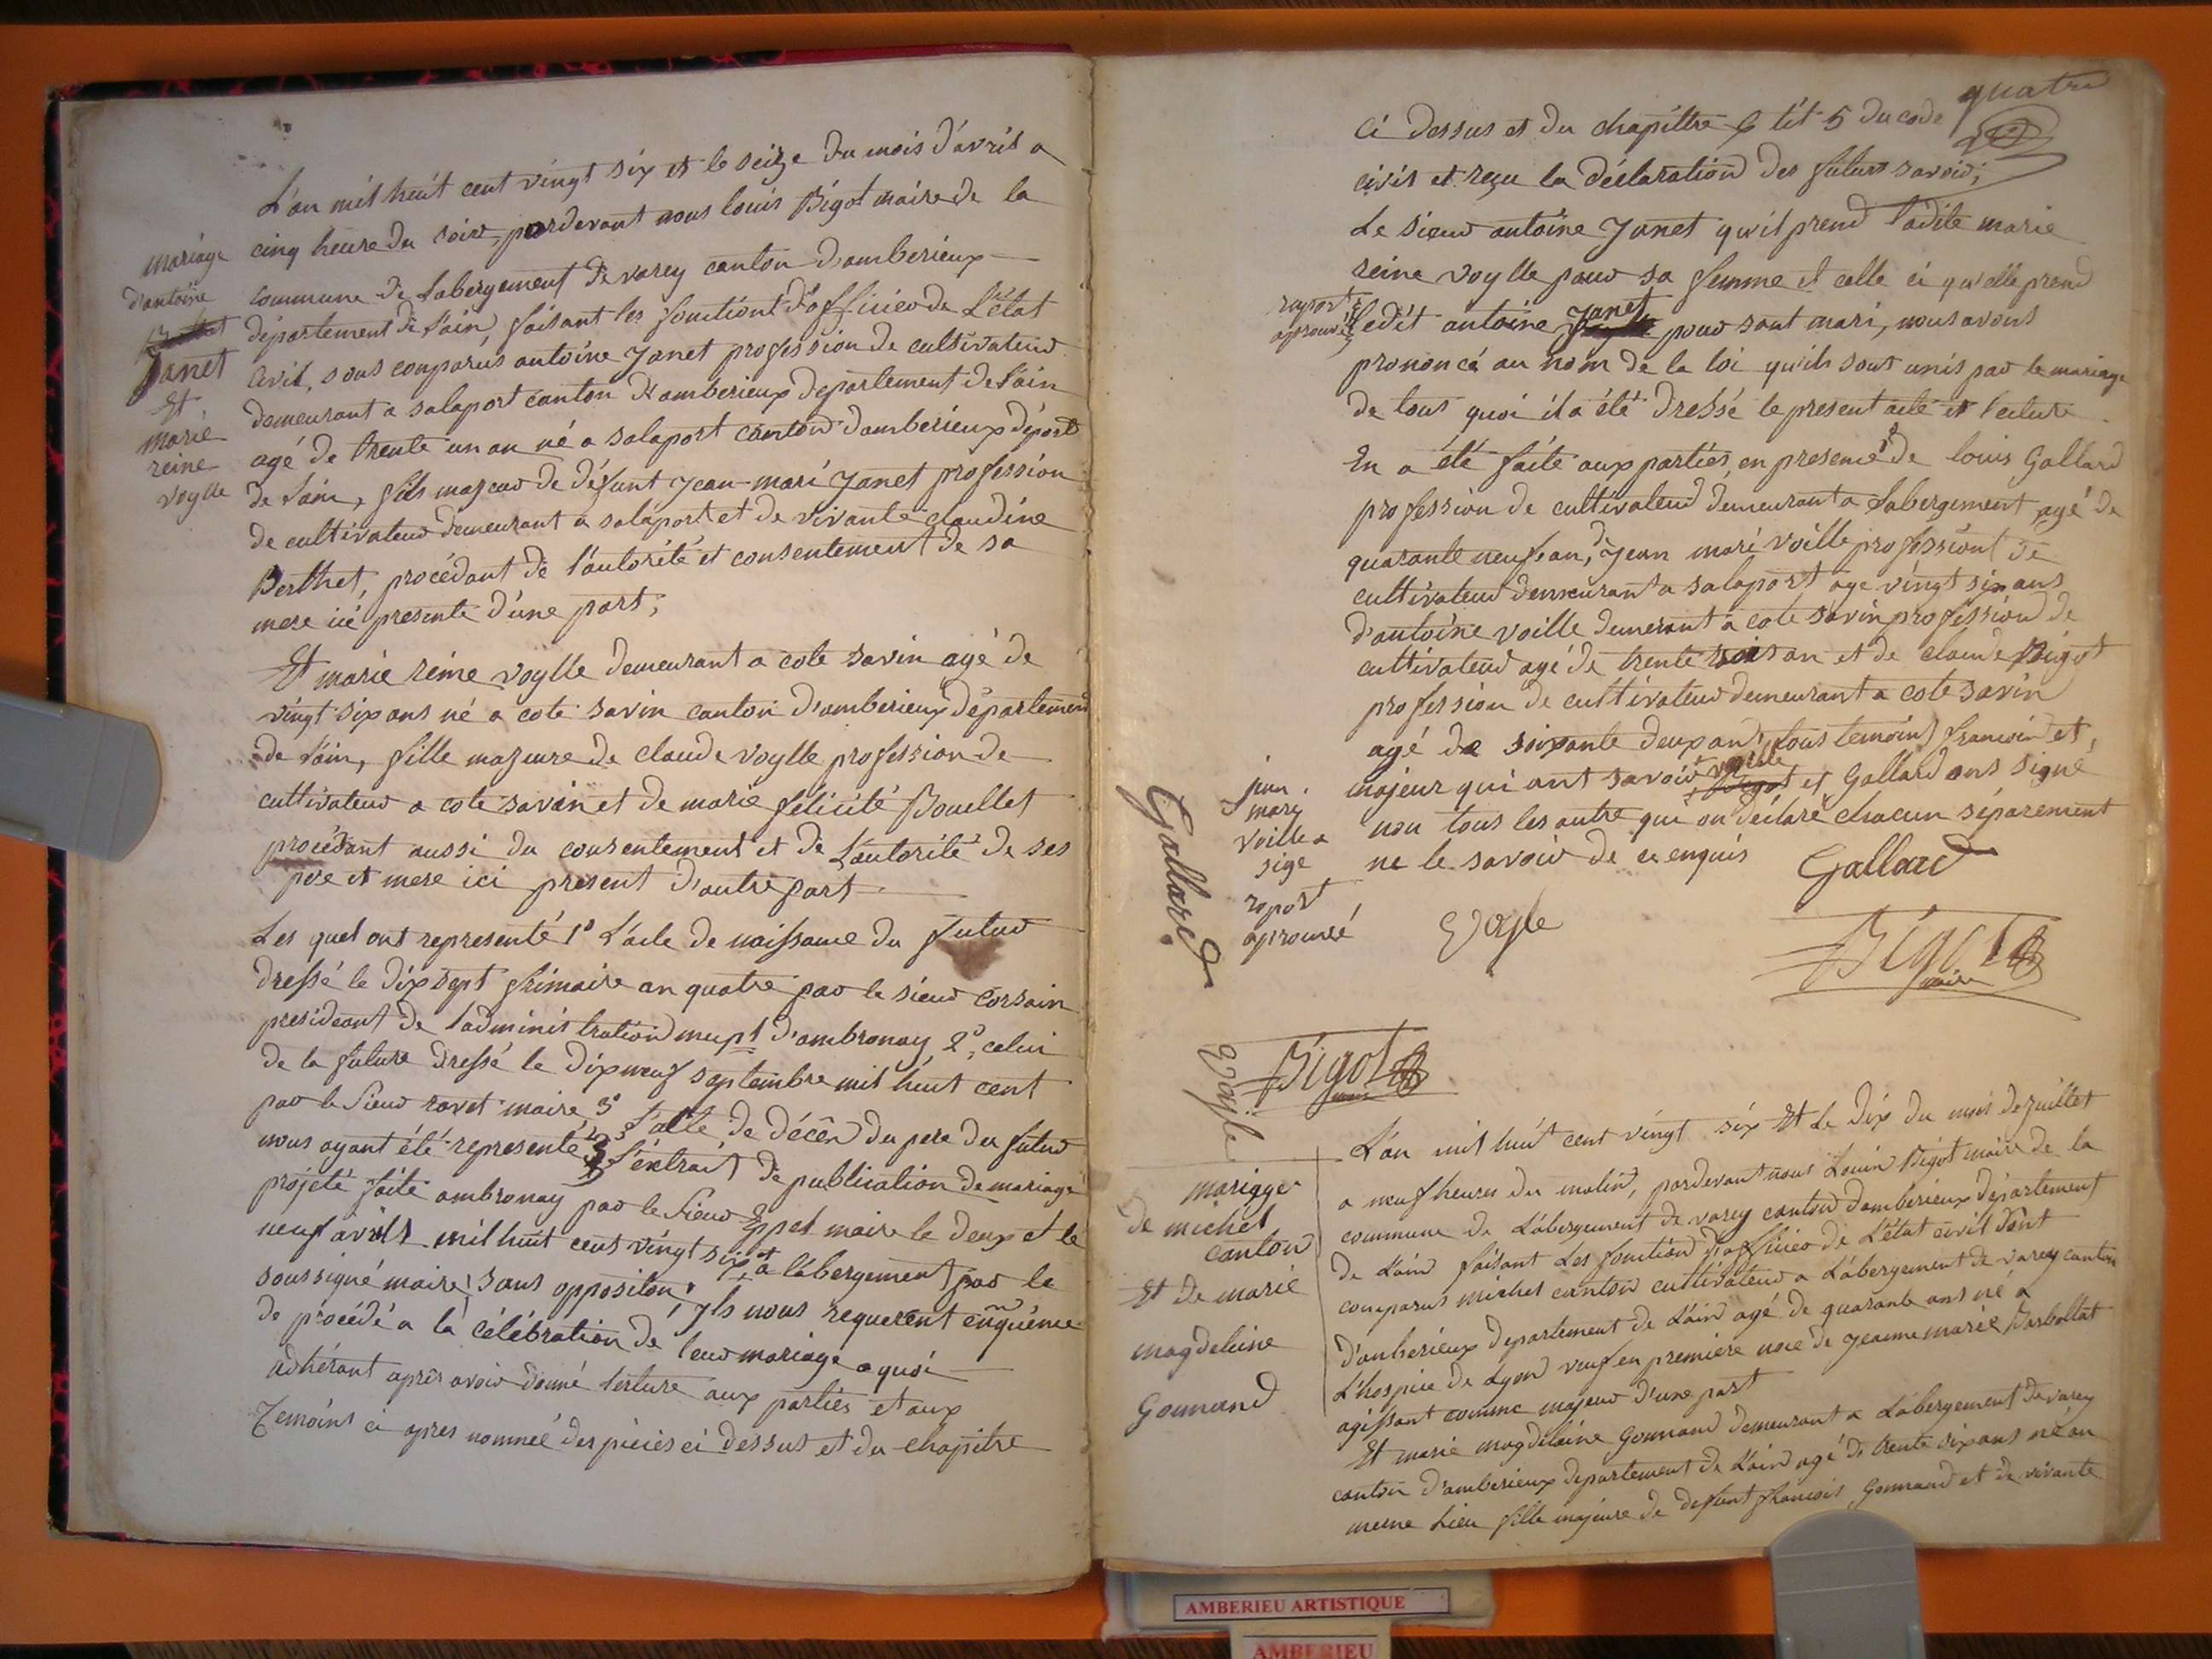 mariage
d'antoine
Janet
Et
marie
reine
voylle
L'an mil heuit cent vingt six et le seize du mois d'avril a
cinq heure du soire, pardevant nous louis Bigot maire de la
commune de Labergement de varey canton d'amberieux
département de l'ain, faisant les fonctiont d'officier de L'état
civil, sont comparus antoine Janet profession de cultivateur
demeurant a salaport canton d'amberieux departement de l'ain
agé de trente un an né a salaport canton d'amberieux départ
de l'ain, fils majeur de défunt jean-mari Janet profession
de cultivateur demeurant a salaport et de vivante claudine
Berthet, procédant de l'autorité et consentement de sa
mere ici presente d'une part;
Et marie reine voylle demeurant a cote savin agé de
vingt six ans né a cote savin canton d'amberieux departement
de l'ain, fille majeure de claude voylle profession de
cultivateur a cote savin et de marie félicité Bouellet
procédant aussi du consentement et de L'autorité de ses
pere et mere ici present d'autre part
Les quel ont representé 1° L'acte de naissance du futur
dressé le dix sept frimaire an quatre par le sieur Corsain
presideant de l'administration mupl d'ambronay, 2°, celui
de la future dressé le dix neuf septembre mil huit cent
par le sieur ravet maire 3° l'acte de décès du pere du futur
nous ayant été representé l'extrait de publication de mariage
projeté faite ambronay par le sieur Eppel maire le deux et le
neuf avril mil huit cent vingt six, et a labergement par le
soussigné maire, sans oppositon; Ils nous requerent enquéme
de procédé a la célébration de leur mariage a quoi
adhérant après avoir donné lecture aux parties et aux
Temoins ci apres nommée des pieces ci dessus et du chapitre
quatre
ci dessus et du chapittre 6 tit 5 du code
civil et reçu la déclaration des futurs savoir;
Le sieur antoine Janet qu'il prend ladite marie
reine voylle pour sa femme et celle ci qu'elle prend
raport
aprouvé
ledit antoine Janet pour sont mari, nous avons
prononcé au nom de la loi qu'ils sont unis par le mariage
de tous quoi il a été dressé le present acte et lecture
En a été faite aux parties, en presence de louis Gallard
profession de cultivateur demeurant a Labergement, agé de
quarante neuf an, de Jean mari voille professiont de
cultivateur demeurant a salaport age vingt six ans
d'antoine voille demerant a cote savin profession de
cultivateur agé de trente trois an et de claude Bigot
profession de cultivateur demeurant a cote savin
agé de soixante deux ans, tous temoins francois et
majeur qui ont savoir voylle Bigot et Gallard ons signé
non tous les autre qui on déclaré chacun séparement
ne le savoir de ce enquis
jean
mary
voille a
sige
raport
aprouvé
Gallard
Gallard
Voyle
Bigot
maire
Voyle
Bigot
maire
mariage
de michel
canton
Et de marie
magdeleine
Gonnand
L'an mil huit cent vingt six Et Le dix du mois de juillet
a neuf heures du matin, pardevant nous Louis Bigot maire de la
commune de Labergement de varey canton d'amberieux département
de L'ain faisant Les fonction d'officier de L'état civil sont
comparus michel canton cultivateur a Labergement de varey canton
d'amberieux departement de L'ain agé de quarante ans né a
L'hospice de Lyon veuf en premiere noce de Jeanne marie Barbollat
agissant comme majeur d'une part
Et marie magdelaine Gonnand demeurant a Labergement de varey
canton d'amberieux departement de L'ain agé de trente six ans né au
meme Lieu fille majeure de defunt francois Gonnand et de vivante
AMBERIEU ARTISTIQUE
AMBERIEU